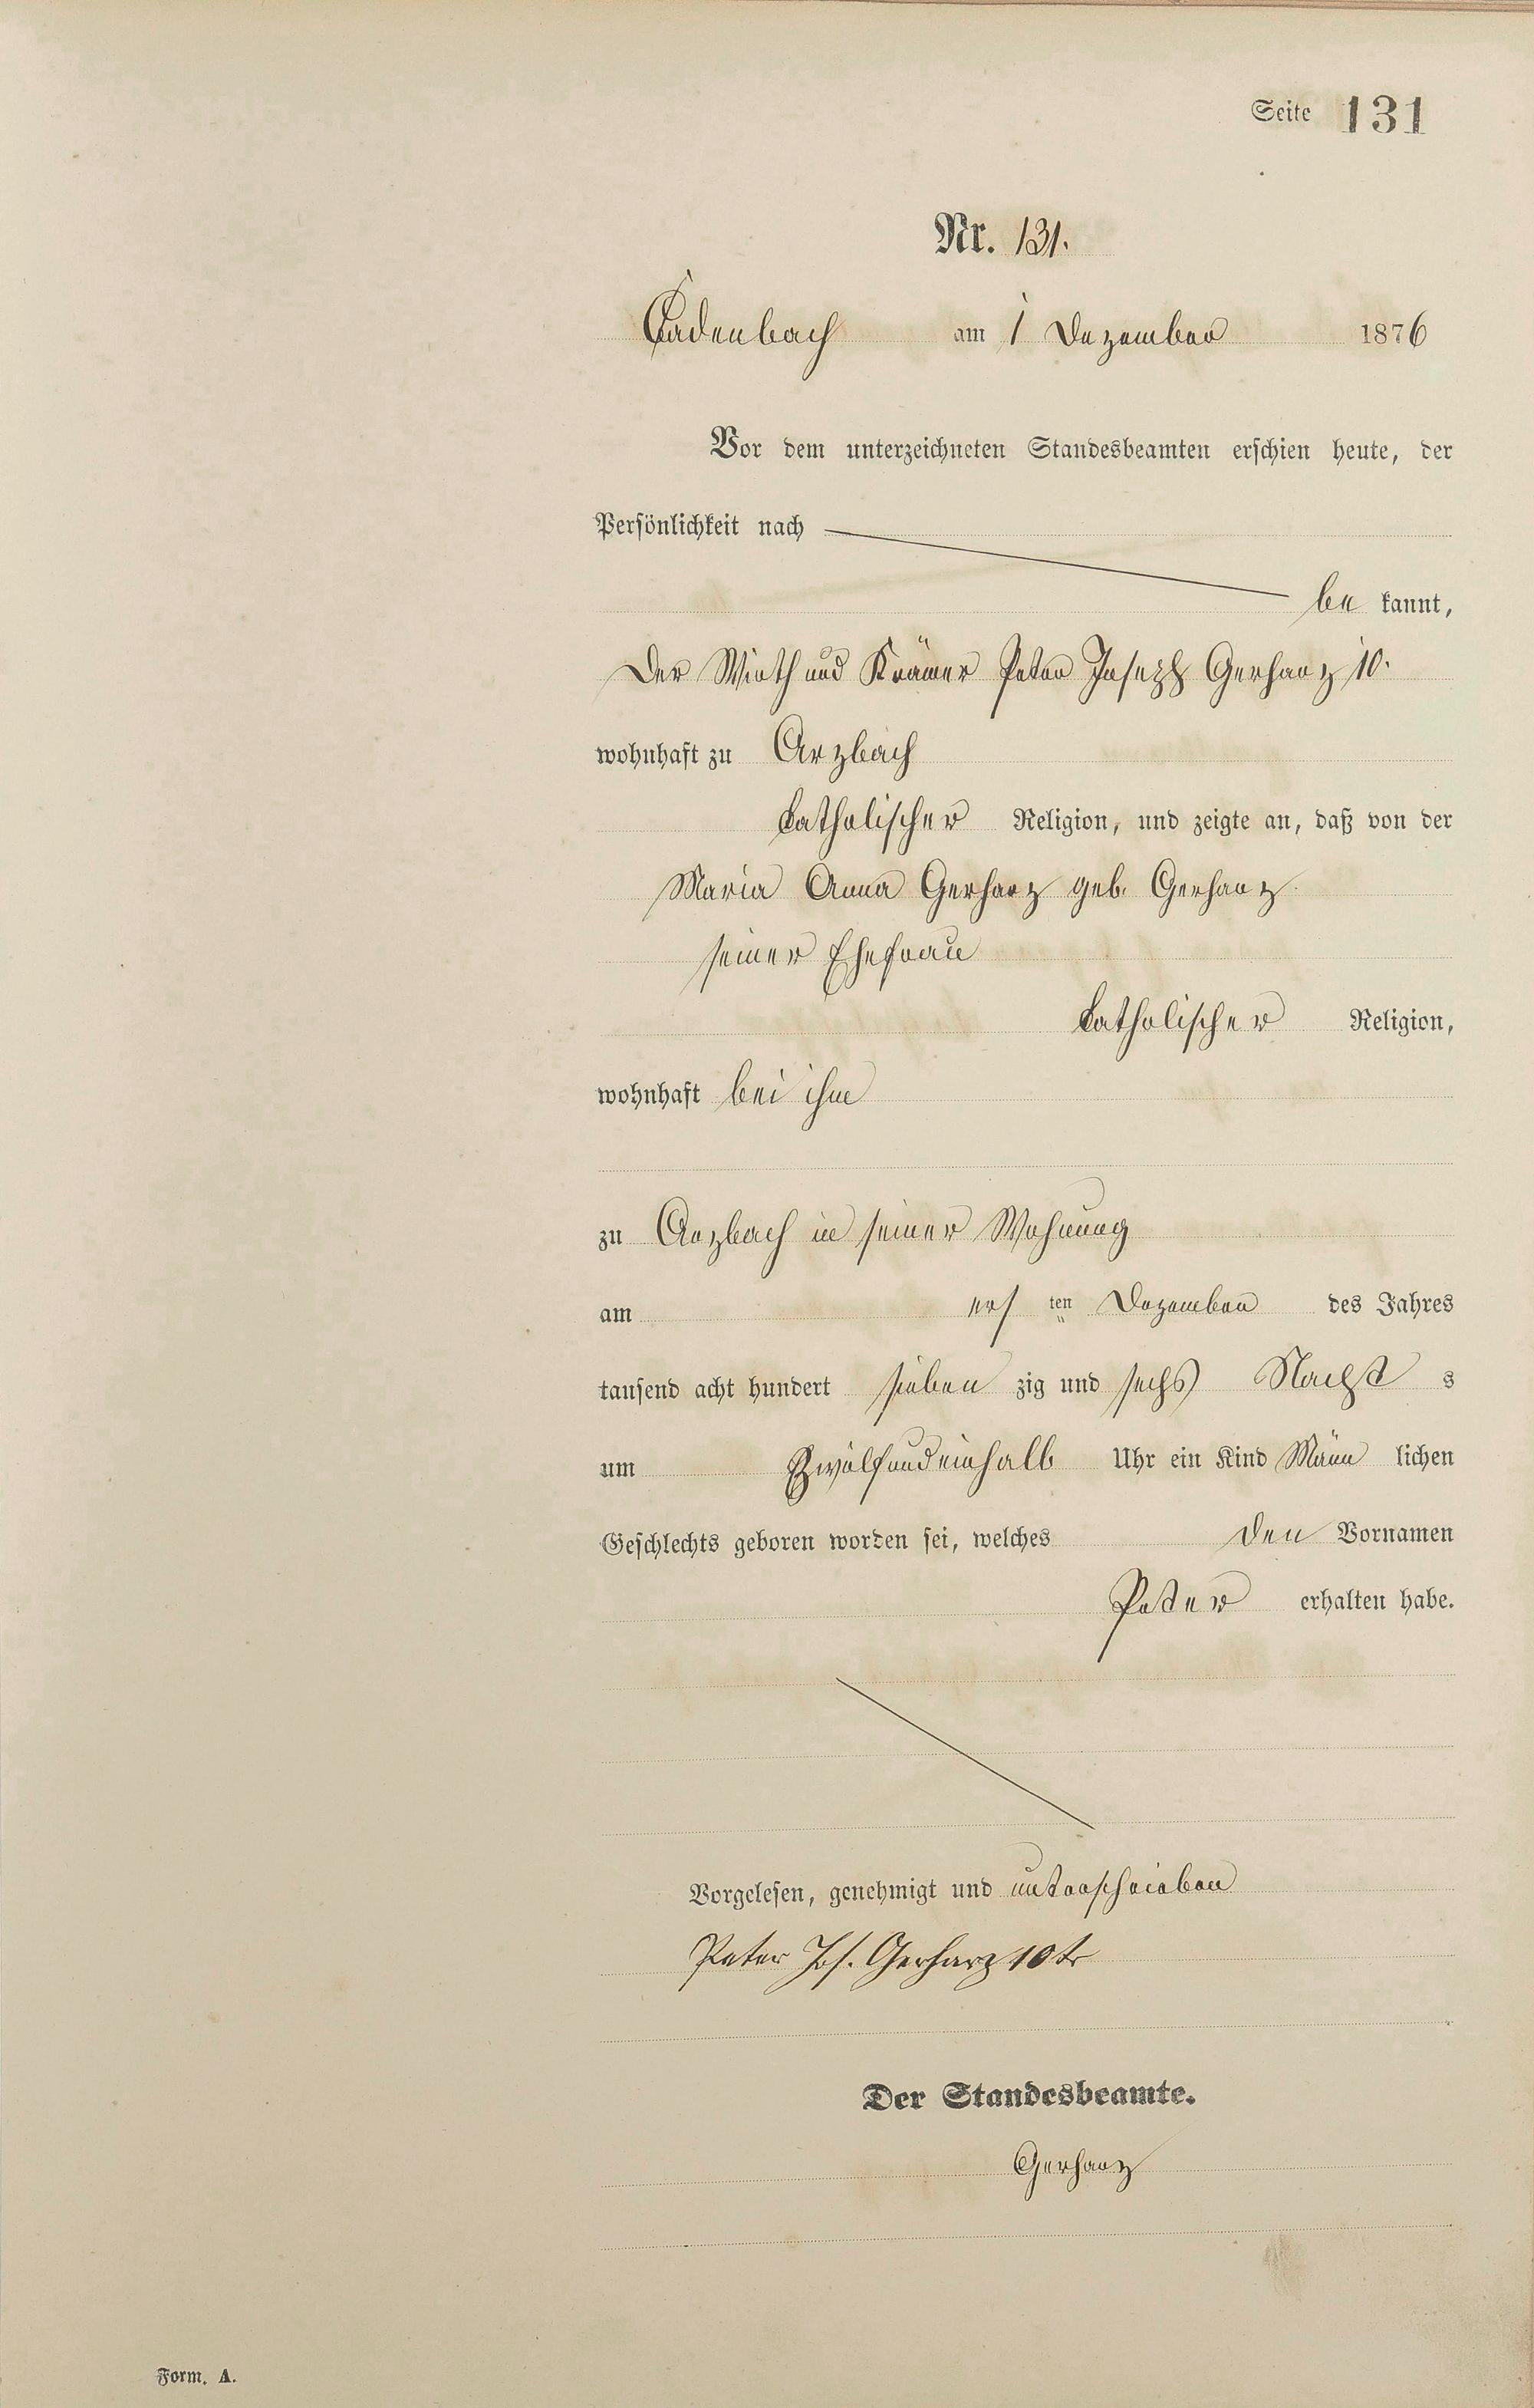 Seite 131
Nr. 131.
Cadenbach am 1 Dezember 1876
Vor dem unterzeichneten Standesbeamten erschien heute, der
Persönlichkeit nach
be kannt,
Der Wirth und Krämer Peter Joseph Gerharz 10.
wohnhaft zu Arzbach
katholischer Religion, und zeigte an, daß von der
Maria Anna Gerharz geb. Gerharz
seiner Ehefrau
katholischer Religion,
wohnhaft bei ihm
zu Arzbach in seiner Wohnung
am ers ten Dezember des Jahres
tausend acht hundert sieben zig und sechs Nacht s
um Zwölfundeinhalb Uhr ein Kind Männ lichen
Geschlechts geboren worden sei, welches den Vornamen
Peter erhalten habe.
Vorgelesen, genehmigt und unterschrieben
Peter Jos. Gerharz 10tr
Der Standesbeamte.
Gerharz
Form. A.